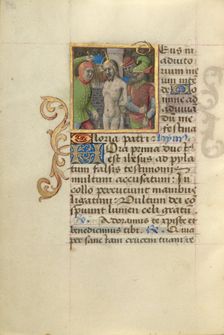 Deus in
adiuto
rium me
um inte
de Do
mine ad
adiuuā
dū me
festina
Gloria patri
Hora prima duc
est ihesus ad pyla
tum falsis testimoni
multum accusatum In
collo percutiunt manibus
ligatum Vultum dei co
spuunt lumen celi gratū
Adoramus te xpiste et
benedicimus tibi
per sanctam crucem tuam re